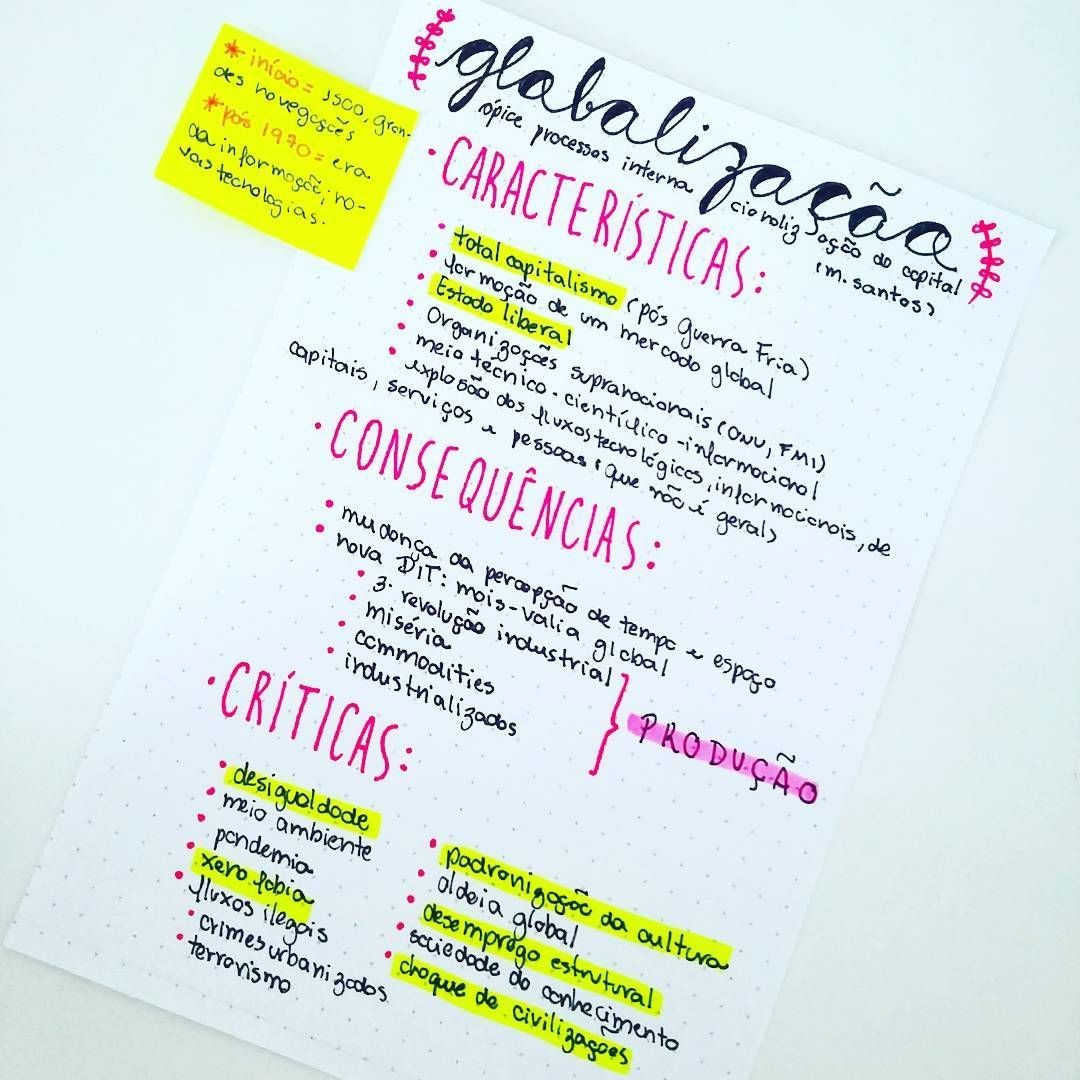 * início = 1500, gran-
des navegações
* pós 1970 = era
da informação; no-
vas tecnologias.
globalização
ápice processos internacionalização do capital
(m. santos)
• CARACTERÍSTICAS:
• total capitalismo (pós Guerra Fria)
• formação de um mercado global
• Estado liberal
• Organizações supranacionais (ONU, FMI)
• meio técnico-científico-informacional
• explosão dos fluxos tecnológicos, informacionais, de
capitais, serviços e pessoas (que não é geral)
• CONSEQUÊNCIAS:
• mudança da percepção de tempo e espaço
• nova DIT: mais-valia global
• 3. revolução industrial
• miséria
• commodities
• industrializados
} PRODUÇÃO
• CRÍTICAS:
• desigualdade
• meio ambiente
• pandemia
• xenofobia
• fluxos ilegais
• crimes urbanizados
• terrorismo
• padronização da cultura
• aldeia global
• desemprego estrutural
• sociedade do conhecimento
• choque de civilizações